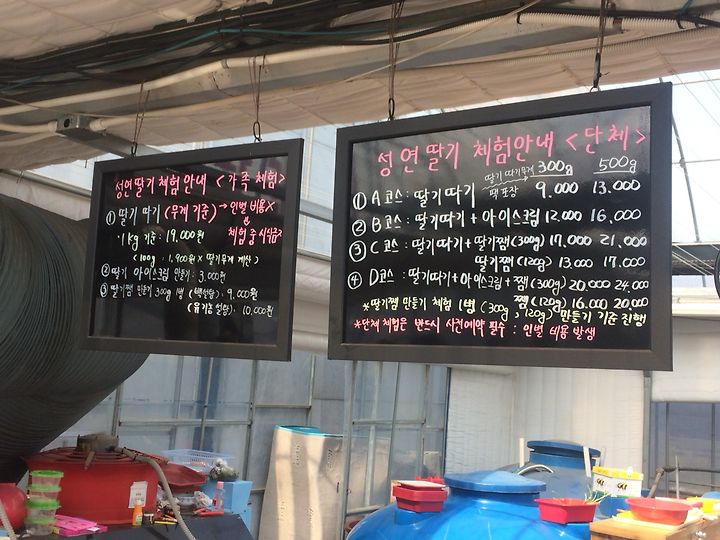 성연딸기 체험안내 <가족 체험>
① 딸기 따기 (무게 기준) → 인별 비용X
체험 중 시식금지
1kg 기준 : 19,000원
(100g : 1,900원 X 딸기무게 계산)
② 딸기 아이스크림 만들기 : 3,000원
③ 딸기쨈 만들기 300g 1병 (백설탕) : 9,000원
(유기농설탕) : 10,000원
성연딸기 체험안내 <단체>
딸기 따기무게 300g 500g
팩 포장
① A코스 : 딸기따기 9,000 13,000
② B코스 : 딸기따기 + 아이스크림 12,000 16,000
③ C코스 : 딸기따기 + 딸기쨈(300g) 17,000 21,000
딸기쨈 (120g) 13,000 17,000
④ D코스 : 딸기따기 + 아이스크림 + 쨈(300g) 20,000 24,000
쨈(120g) 16,000 20,000
*딸기쨈 만들기 체험 1병 (300g, 120g) 만들기 기준 진행
*단체 체험은 반드시 사전예약 필수 : 인별 비용 발생